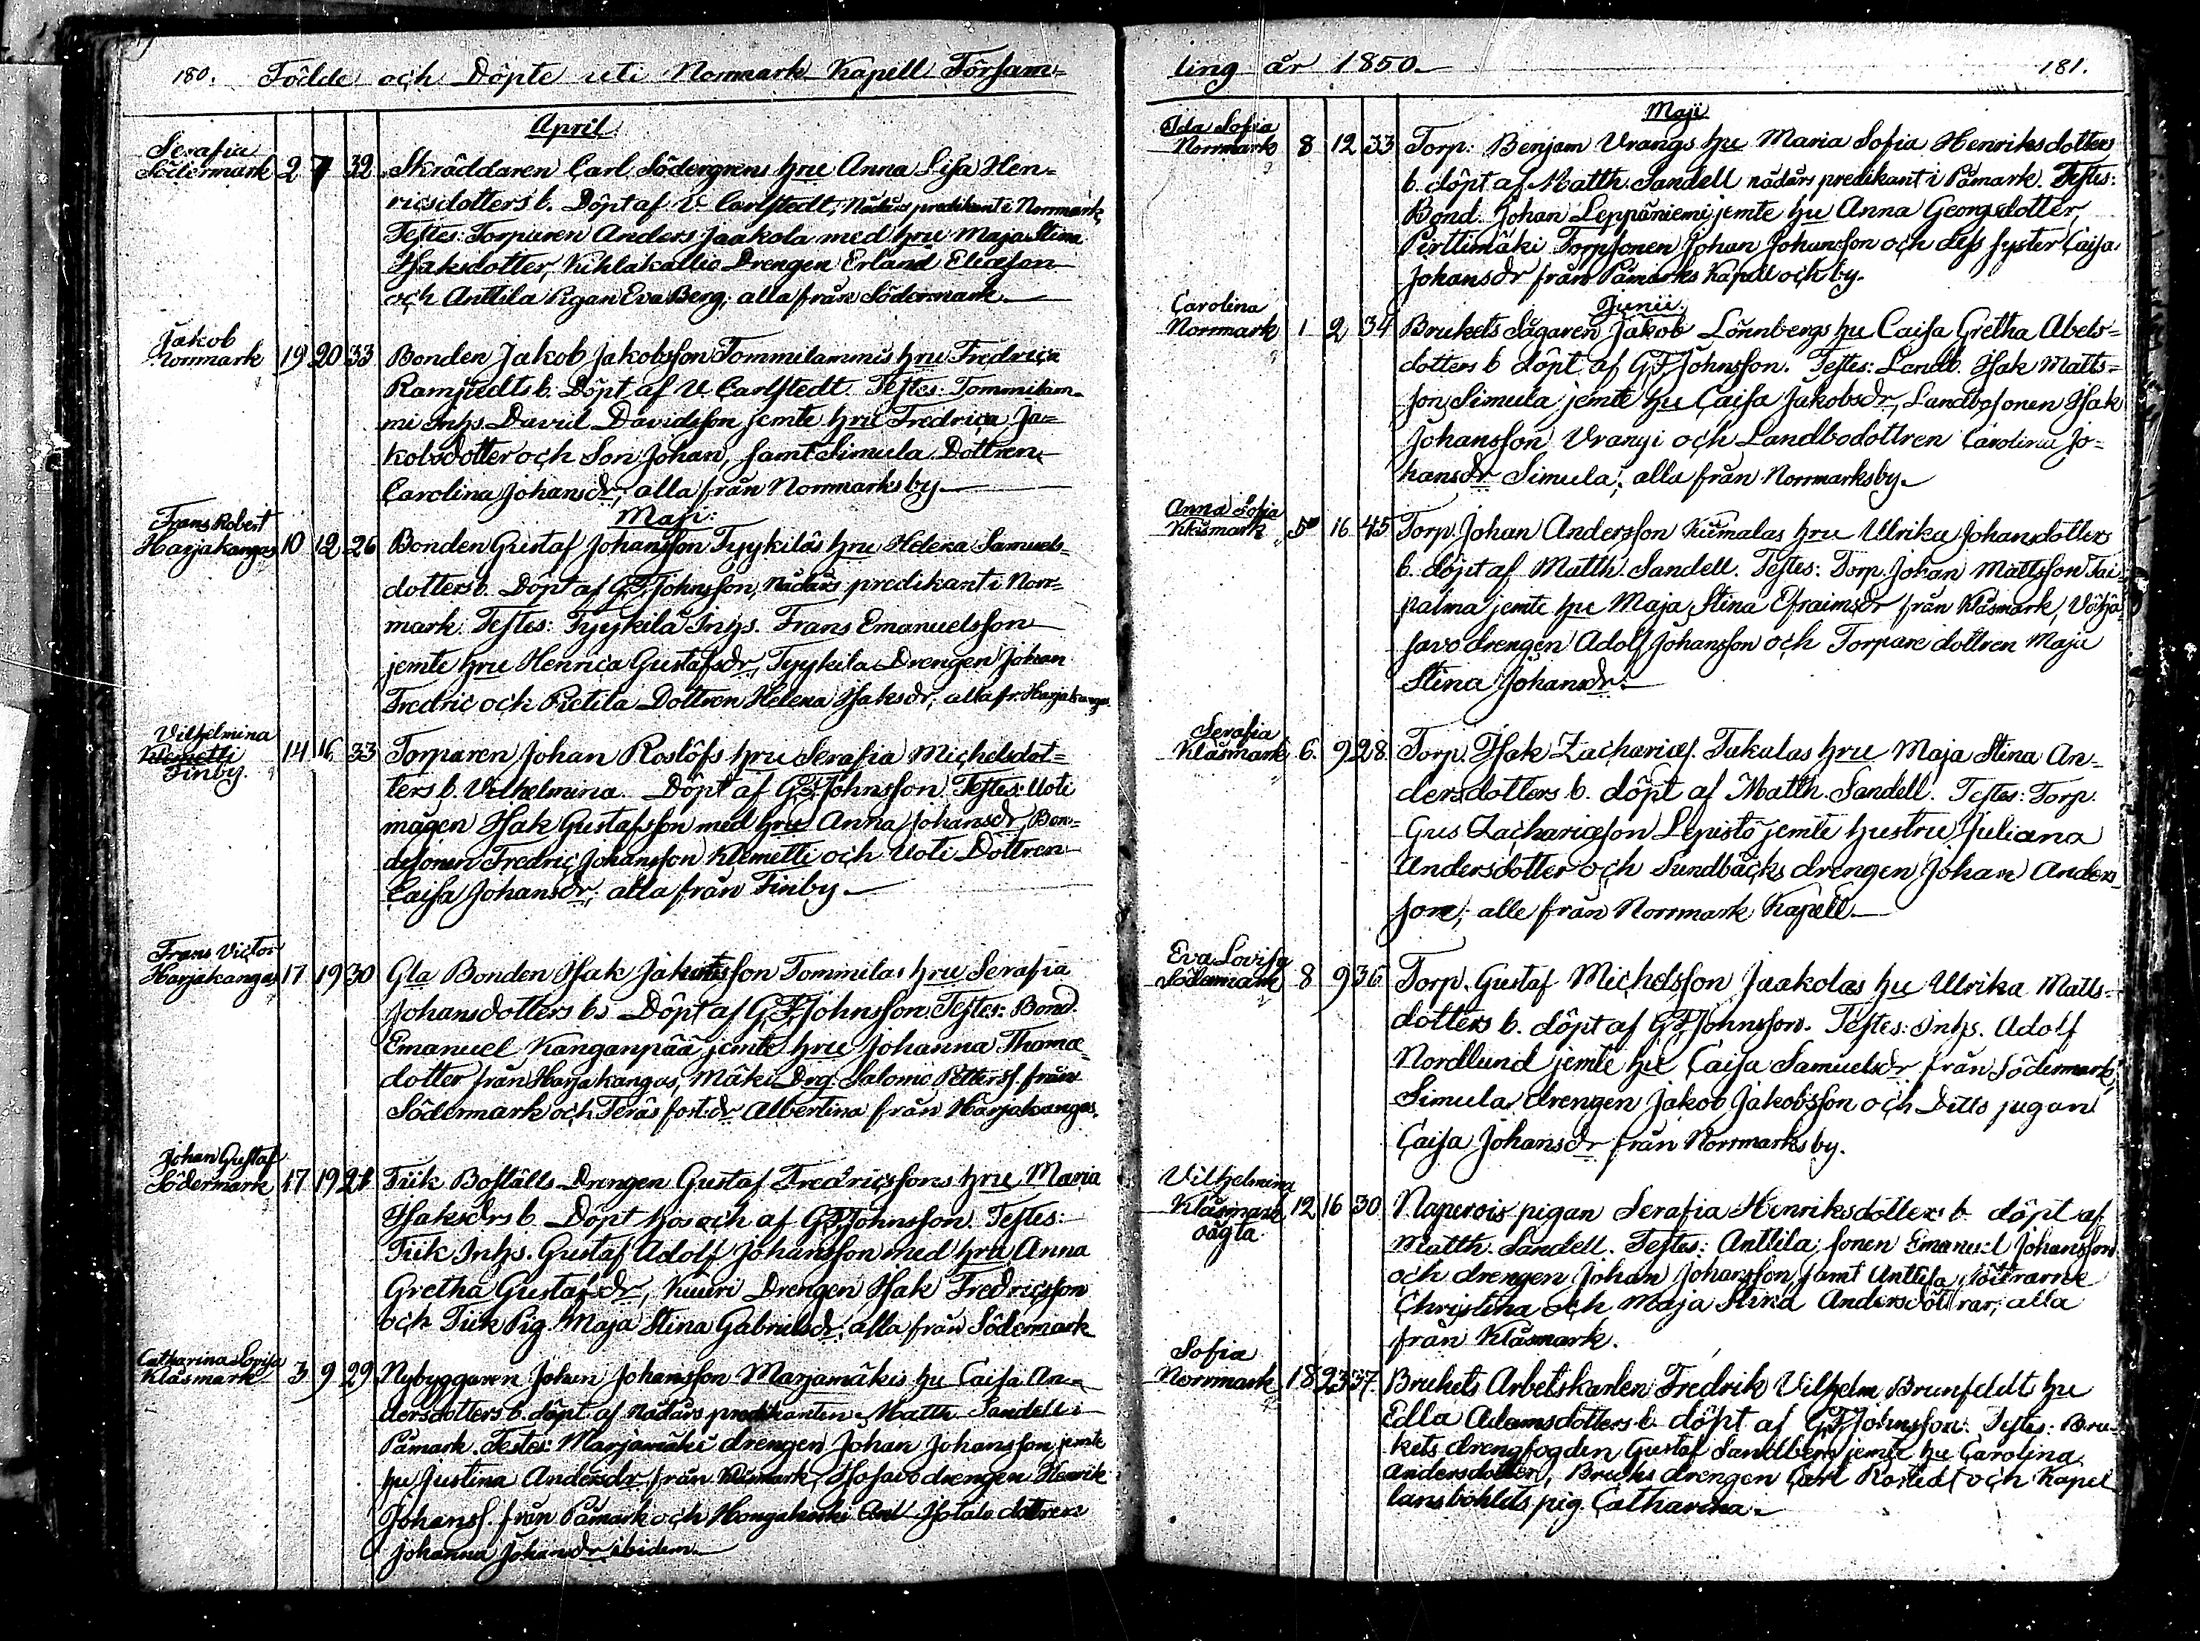 180. Födde och Döpte uti Norrmark Kapell Försam=
April
Serafia
Södermark 2 7 32 Skräddaren Carl Södergrens hru Anna Lisa Hen=
ricsdotters b. Döpt af V. Carlstedt, Nådårs predikant i Norrmark
Testes: Torparen Anders Jaakola med hru Maja Stina
Isaksdotter, Kihlakallio Drengen Erland Eliæson
och Anttila Pigan Eva Berg, alla från Södermark.
Jakob
Norrmark 19 20 33 Bonden Jakob Jakobsson Tommilammis hru Fredrica
Ramstedts b. Döpt af V. Carlstedt. Testes: Tommilam-
mi Inhs. David Davidsson jemte hru Fredrica Ja=
kobsdotter och Son Johan, samt Simula Dottren
Carolina Johansdr, alla från Norrmarksby.
Maji:
Frans Robert
Harjakangas 10 12 26 Bonden Gustaf Johansson Tyykiläs hru Helena Samuels-
dotters b. Döpt af G.F. Johnsson, Nådårs predikant i Norr=
mark. Testes: Tyykilä Inhs. Frans Emanuelsson
jemte hru Henrica Gustafsdr, Tyykila Drengen Johan
Fredric och Pietila Dottren Helena Isaksdr, alla fr. Harjakangas.
Vilhelmina
Klemetti
Finby. 14 16 33 Torparen Johan Roslöfs hru Serafia Michelsdot=
ters b. Vilhelmina. Döpt af G.F. Johnsson. Testes: Uoti
mågen Isak Gustafsson med hru Anna Johansdr, Bon-
desonen Fredric Johansson Klemetti och Uoti Dottren
Caisa Johansdr, alla från Finby.
Frans Victor
Harjakangas 17 19 30 Gla Bonden Isak Jakobsson Tommilas hru Serafia
Johansdotters b. Döpt af G.F. Johnsson. Testes: Bond.
Emanuel Kanganpää jemte hru Johanna Thomæ
dotter från Harjakangas, Mäki Drg. Salomo Petterss. från
Södermark och Teräs fost.dr Albertina från Harjakangas.
Johan Gustaf
Södermark 17 19 21 Tuk Boställs Drengen Gustaf Fredricssons hru Maria
Isaksdrs b. Döpt hos och af G.F. Johnsson. Testes:
Tuk Inhs. Gustaf Adolf Johansson med hru Anna
Gretha Gustafsdr, Kuuri Drengen Isak Fredricsson
och Tuk Pig. Maja Stina Gabrielsdr, alla från Södermark
Catharina Lovisa
Klåsmark 3 9 29 Nybyggaren Johan Johansson Marjamäkis hu Caisa An=
dersdotters b. döpt af nådårs predikanten Matth. Sandell i
Påmark. Testes: Marjamäki drengen Johan Johansson jemte
hu Justina Andersdr från Klåsmark, Isosavo drengen Henrik
Johanss. från Påmark och Hongakoski dottren
Johanna Johansdr ibidem.
ling år 1850. 181.
Maji
Ida Sofia
Norrmark 8 12 33 Torp. Benjam Vrangs hu Maria Sofia Henriksdotters
b. döpt af Matth. Sandell nådårs predikant i Påmark. Testes:
Bond. Johan Leppäniemi jemte hu Anna Georgsdotter,
Perttimäki Torpsonen Johan Johansson och dess syster Caisa
Johansdr från Påmarks Kapell och by.
Junii
Carolina
Norrmark 1 2 34 Brukets Sågaren Jakob Lönnbergs hu Caisa Gretha Abels-
dotters b. döpt af G.F. Johnsson. Testes: Landb. Isak Matts=
son Simula jemte hu Caisa Jakobsdr, Landbosonen Isak
Johansson Vrangi och Landbodottren Carolina Jo=
hansdr Simula, alla från Norrmarksby.
Anna Sofia
Klåsmark 5 16 45 Torp. Johan Andersson Kiimalas hru Ullrika Johansdotters
b. döpt af Matth. Sandell. Testes: Torp. Johan Mattsson Tai-
palma jemte hu Maja Stina Efraimsdr från Klåsmark, Vähä-
savo drengen Adolf Johansson och Torpare dottren Maja
Stina Johansdr.
Serafia
Klåsmark 6. 9 28. Torp. Isak Zachariæs. Takalas hru Maja Stina An-
dersdotters b. döpt af Matth. Sandell. Testes: Torp.
Gus. Zachariæson Lepistö jemte hustru Juliana
Andersdotter och Sundbäcks drengen Johan Anders-
son, alle från Norrmark Kapell.
Eva Lovisa
Södermark 8 9 36 Torp. Gustaf Michelsson Jaakolas hu Ullrika Matts-
dotters b. döpt af G.F. Johnsson. Testes: Inhs. Adolf
Nordlund jemte hu Caisa Samuelsdr från Södermark,
Simula drengen Jakob Jakobsson och Ditto pigan
Caisa Johansdr från Norrmarksby.
Vilhelmina
Klåsmark
oägta 12 16 30 Naperois pigan Serafia Henriksdotters b. döpt af
Matth. Sandell. Testes: Anttila sonen Emanuel Johansson
och drengen Johan Johansson, samt Anttila döttrarne
Christina och Maja Stina Andersdöttrar, alla
från Klåsmark.
Sofia
Norrmark 18 23 37 Brukets Arbetskarlen Fredrik Vilhelm Brunfeldt hu
Edla Adamsdotters b. döpt af G.F. Johnsson. Testes: Bru-
kets drengfogden Gustaf Sandberg jemte hu Carolina
Andersdotter, Bruks drengen Carl och Kapel
lansbohlets pig. Catharina.